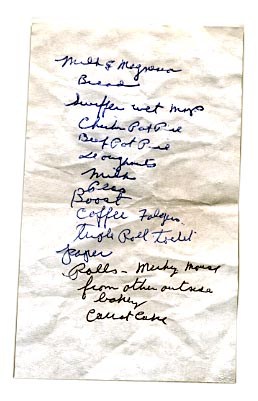 Milk of Magnesia
Bread
Swiffer wet mops
Chicken Pot Pie
Beef Pot Pie
doughnuts
Milk
Peas
Boost
Coffee Folgers
triple Roll toilet
paper
Rolls - Mickey Mouse
from other outside
bakery
Carrot Cake